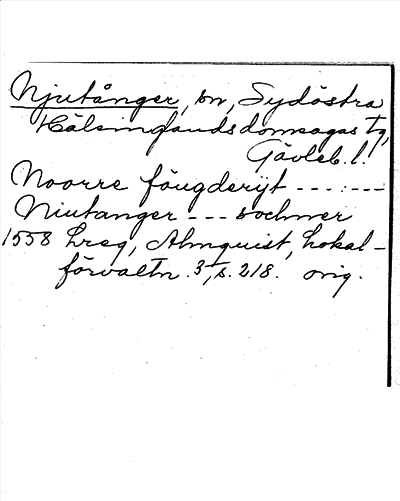 Njutånger, sn, Sydöstra
Hälsinglands domsagas tg,
Gävleb. l.
Noorre föugderijt --- : ---
Niutanger --- sochner
1558 Lreg, Almquist, Lokal-
förvaltn. 3/1, s. 218. orig.